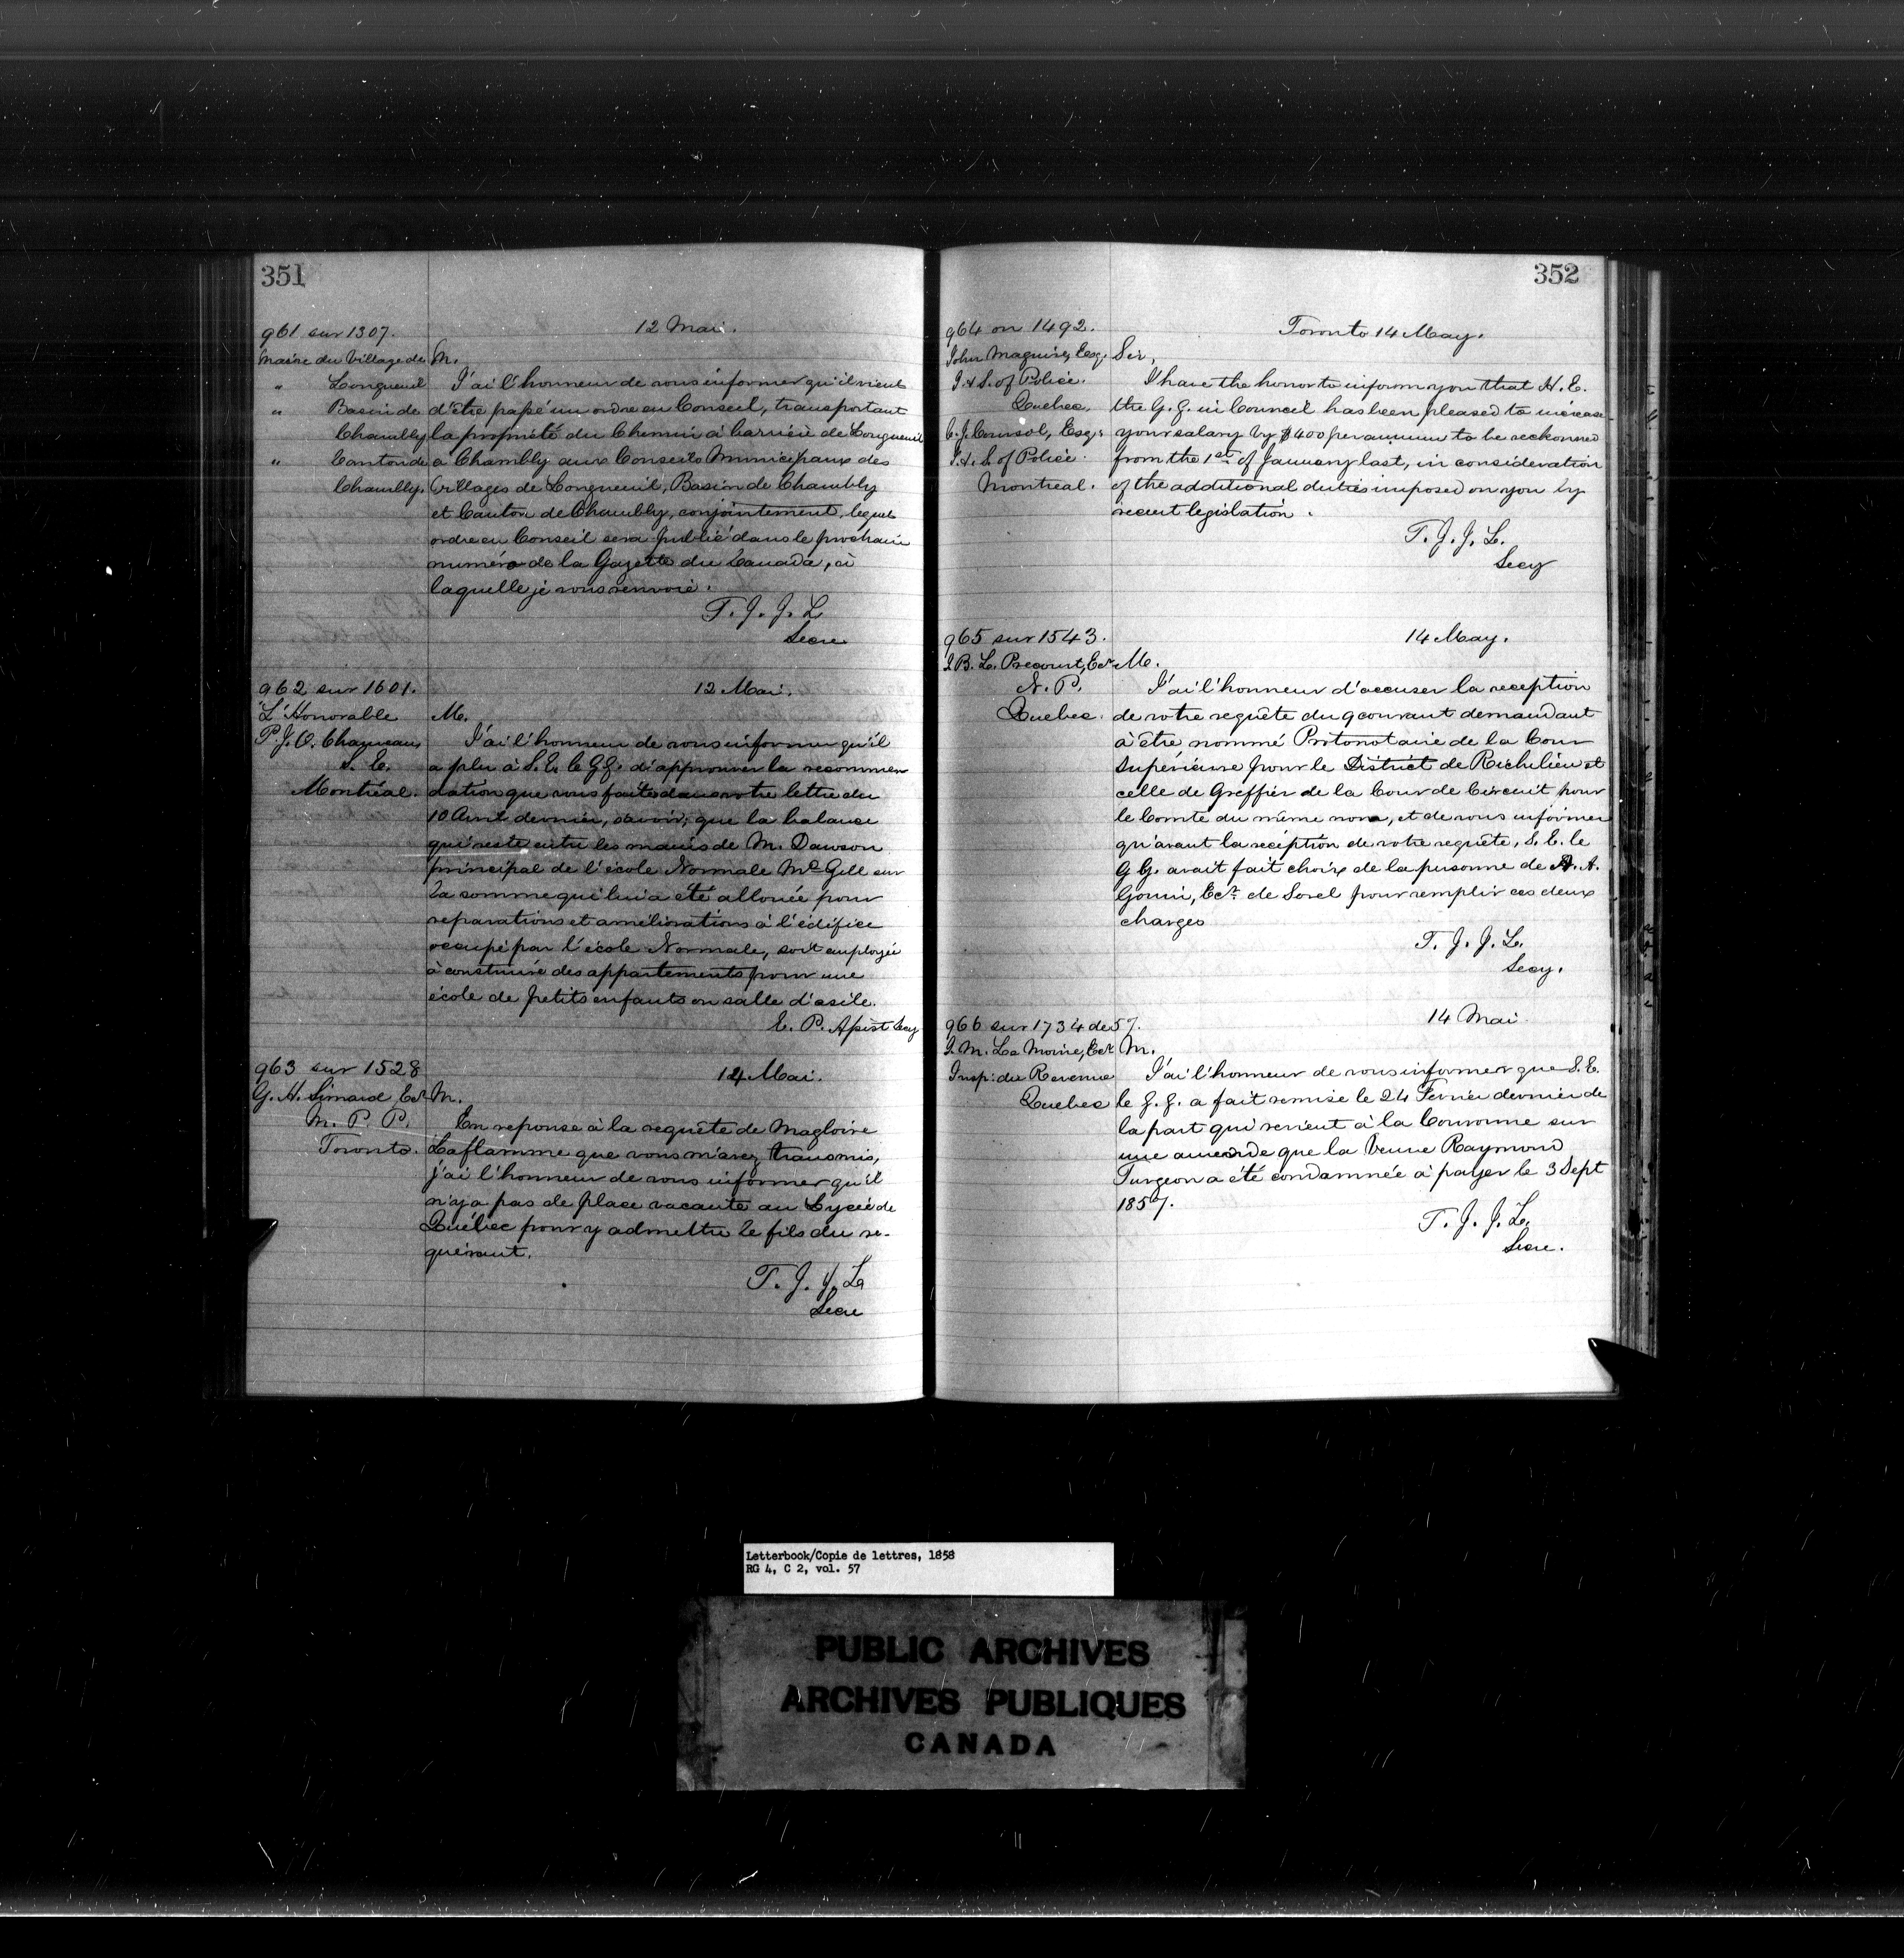 351
961 sur 1307.
12 Mai.
Maire du Village de
" Longueuil
" Basin de
Chambly
" Canton de
Chambly.
M.
J'ai l'honneur de vous informer qu'il vient
d'être passé un ordre en Conseil, transportant
la propriété du Chemin à barrière de Longueuil
a Chambly aux Conseils Municipaux des
Villages de Longueuil, Basin de Chambly
et Canton de Chambly, conjointement, lequel
ordre en Conseil sera publié dans le prochain
numéro de la Gazette du Canada, à
laquelle je vous renvoie.
T. J. J. L
Secre
962 sur 1601.
12 Mai.
L'Honorable
P. J. O. Chauveau
S. E.
Montréal.
M.
J'ai l'honneur de vous informer qu'il
a plu à S. E. le G.G. d'approuver la recommen
dation que vous faites dans votre lettre du
10 Avril dernier, savoir; que la balance
qui reste entre les mains de M. Dawson
principal de l'école Normale McGill sur
la somme qui lui a été allouée pour
reparations et améliorations à l'édifice
occupé par l'école Normale, soit employée
à construire des appartements pour une
école de petits enfants ou salle d'asile.
E. P. Assist Secy
963 sur 1528
14 Mai.
G. H. Simard Ecr
M. P. P.
Toronto.
M.
En reponse à la requête de Magloire
Laflamme que vous m'avez transmis,
j'ai l'honneur de vous informer qu'il
n'y a pas de place vacante au Lycée de
Québec pour y admettre le fils du re-
quérant.
T. J. J. L
Secre
352
964 on 1492.
Toronto 14 May.
John Maguire, Esq.
I. & S. of Police.
Quebec.
C. J. Coursol, Esq.
I. & S. of Police.
Montreal.
Sir,
I have the honor to inform you that H. E.
the G. G. in Council has been pleased to increase
your salary by $400 per annum to be reckoned
from the 1st of January last, in consideration
of the additional duties imposed on you by
recent legislation.
T. J. J. L.
Secy
965 sur 1543.
14 May.
J. B. L. Precourt, Ecr
N. P.
Quebec.
M.
J'ai l'honneur d'accuser la reception
de votre requête du 9 courant demandant
à être nommé Protonotaire de la Cour
Supérieure pour le District de Richelieu et
celle de Greffier de la Cour de Circuit pour
le Comté du même nom, et de vous informer
qu'avant la réception de votre requête, S. E. le
G G. avait fait choix de la personne de A. A.
Gouin, Ecr. de Sorel pour remplir ces deux
charges
T. J. J. L.
Secy.
966 sur 1734 de 57.
14 Mai
J. M. Le Moine, Ecr
Insp: du Revenue
Quebec
M.
J'ai l'honneur de vous informer que S. E.
le G. G. a fait remise le 24 Fevrier dernier de
la part qui revient à la Couronne sur
une amende que la Veuve Raymond
Turgeon a été condamnée à payer le 3 Sept
1857.
T. J. J. L.
Secre.
Letterbook/Copie de lettres, 1858
RG 4, C 2, vol. 57
PUBLIC ARCHIVES
ARCHIVES PUBLIQUES
CANADA